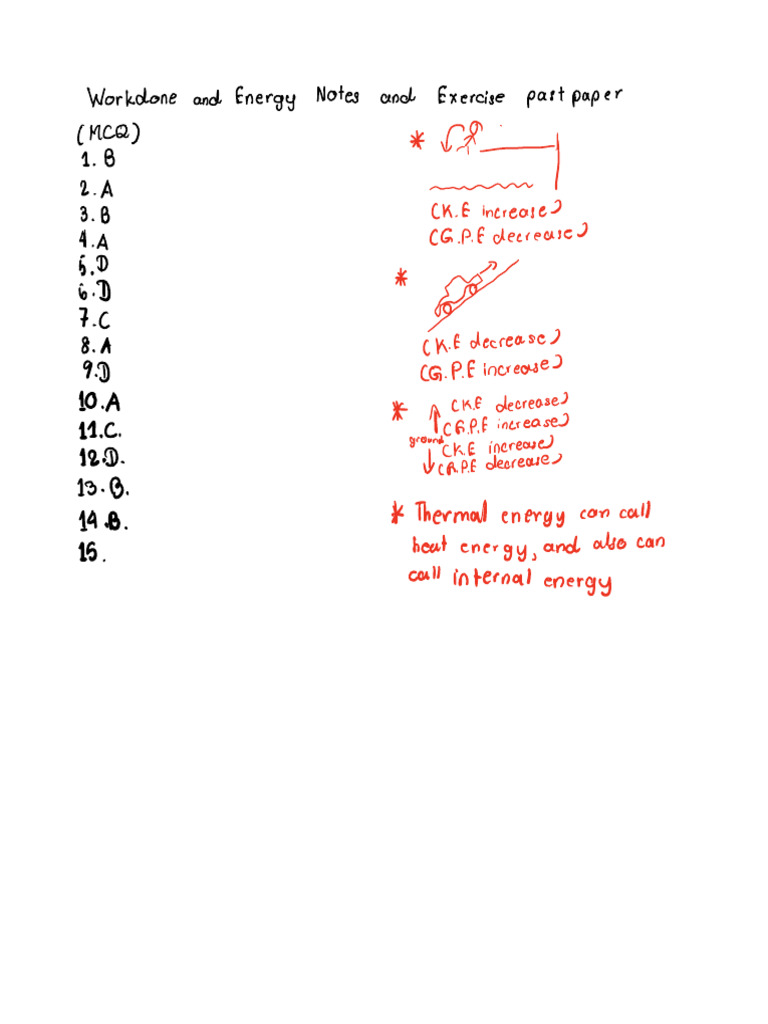 Workdone and Energy Notes and Exercise past paper
(MCQ)
1. B
2. A
3. B
4. A
5. D
6. D
7. C
8. A
9. D
10. A
11. C.
12. D.
13. B.
14. B.
15.
*
(K.E increase)
(G.P.E decrease)
*
(K.E decrease)
(G.P.E increase)
* (K.E decrease)
(G.P.E increase)
ground
(K.E increase)
(G.P.E decrease)
* Thermal energy can call
heat energy, and also can
call internal energy